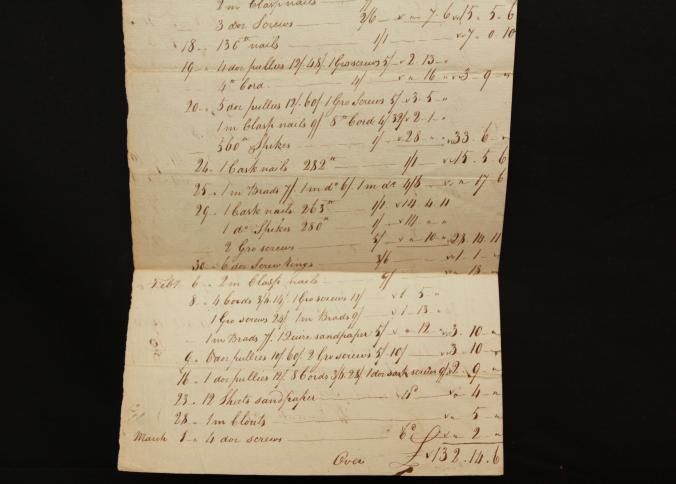 2 m Clasp nails
3 doz Screws 2/6 " " 7 . 6 " 15 . 5 . 6
18 " 130 lb nails 1/1 " 7 " 0 . 10
19 " 4 doz pullies 12/. 48/. 1 Gro screws 5/ " 2 . 13 . "
4 lb Cord 4/ " " 16 " " 3 . 9 "
20 " 5 doz pullies 12/. 60/ 1 Gro Screws 5/ " 3 . 5 . "
1 m Clasp nails 9/ 8 lb Cord 4/ 32/ " 2 . 1 . "
560 lb Spikes 1/ " 28 . " " 33 . 6 . "
24 " 1 Cask nails 282 lb 1/1 " 15 . 5 . 6
25 " 1 m Brads 7/. 1 m do 6/. 1 m do 4/6 " " 17 . 6
29 " 1 Cask nails 263 lb 1/1 " 14 . 4 . 11
1 do Spikes 280 lb 1/ " 14 . " "
2 Gro screws 5/ " " 10 . " 28 . 14 . 11
30 " 6 doz Screw Rings 3/6 " 1 . 1 . "
Feby 6 " 2 m Clasp nails 9/ " " 18 . "
8 " 4 Cords 3/6 14/. 1 Gro screws 11/ " 1 . 5 . "
1 Gro screws 24/ 1 m Brads 9/ " 1 . 13 . "
1 m Brads 7/. 1 Quire sandpaper 5/ " " 12 . " " 3 . 10 . "
9 " 6 doz pullies 10/. 60/. 2 Gro screws 5/. 10/ " 3 . 10 . "
16 " 1 doz pullies 12/. 8 Cords 3/6 28/. 1 doz screws 9/ " 2 . 9 . "
23 " 12 Sheets sandpaper 4d " " 4 . "
28 " 1 m Clouts " " 5 . "
March 1 " 4 doz screws 6d " " 2 . "
Over £ 132 . 14 . 6